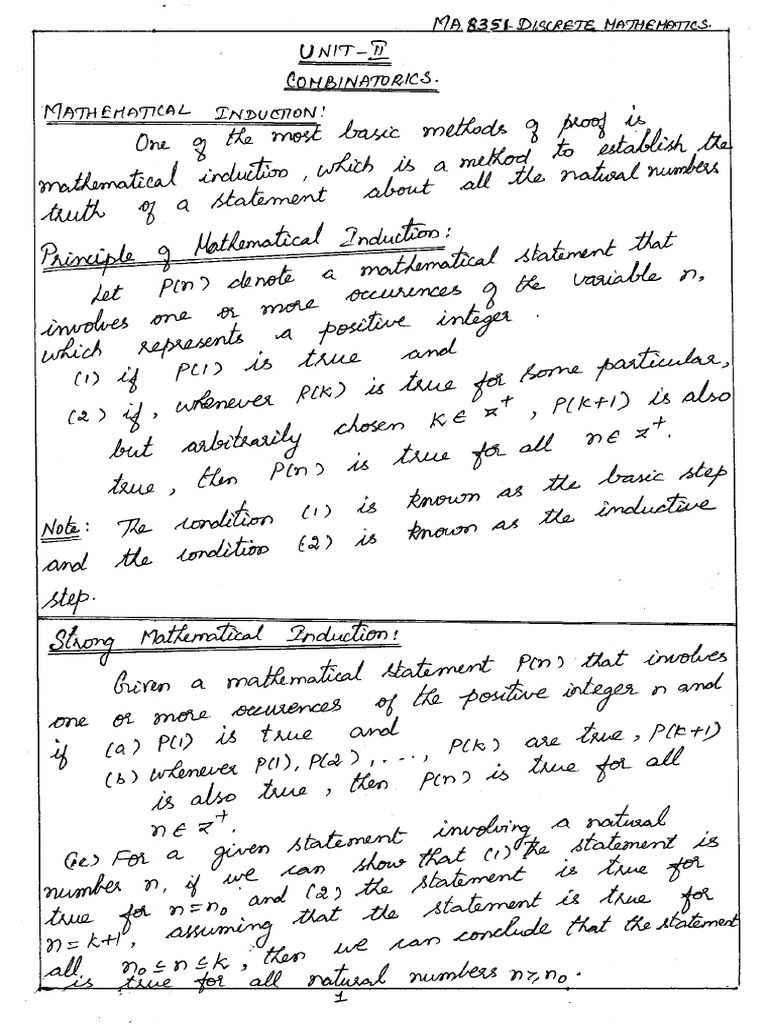 MA 8351-DISCRETE MATHEMATICS.
UNIT-II
COMBINATORICS.
MATHEMATICAL INDUCTION:
One of the most basic methods of proof is
mathematical induction, which is a method to establish the
truth of a statement about all the natural numbers
Principle of Mathematical Induction:
Let P(n) denote a mathematical statement that
involves one or more occurences of the variable n,
which represents a positive integer.
(1) if P(1) is true and
(2) if, whenever P(k) is true for some particular,
but arbitrarily chosen k ∈ z⁺, P(k+1) is also
true, then P(n) is true for all n ∈ z⁺.
Note: The condition (1) is known as the basic step
and the condition (2) is known as the inductive
step.
Strong Mathematical Induction:
Given a mathematical statement P(n) that involves
one or more occurences of the positive integer n and
if (a) P(1) is true and
(b) whenever P(1), P(2), ..., P(k) are true, P(k+1)
is also true, then P(n) is true for all
n ∈ z⁺.
(ie) For a given statement involving a natural
number n, if we can show that (1) the statement is
true for n=n₀ and (2) the statement is true for
n=k+1, assuming that the statement is true for
all n₀ ≤ n ≤ k, then we can conclude that the statement
is true for all natural numbers n ≥ n₀.
1